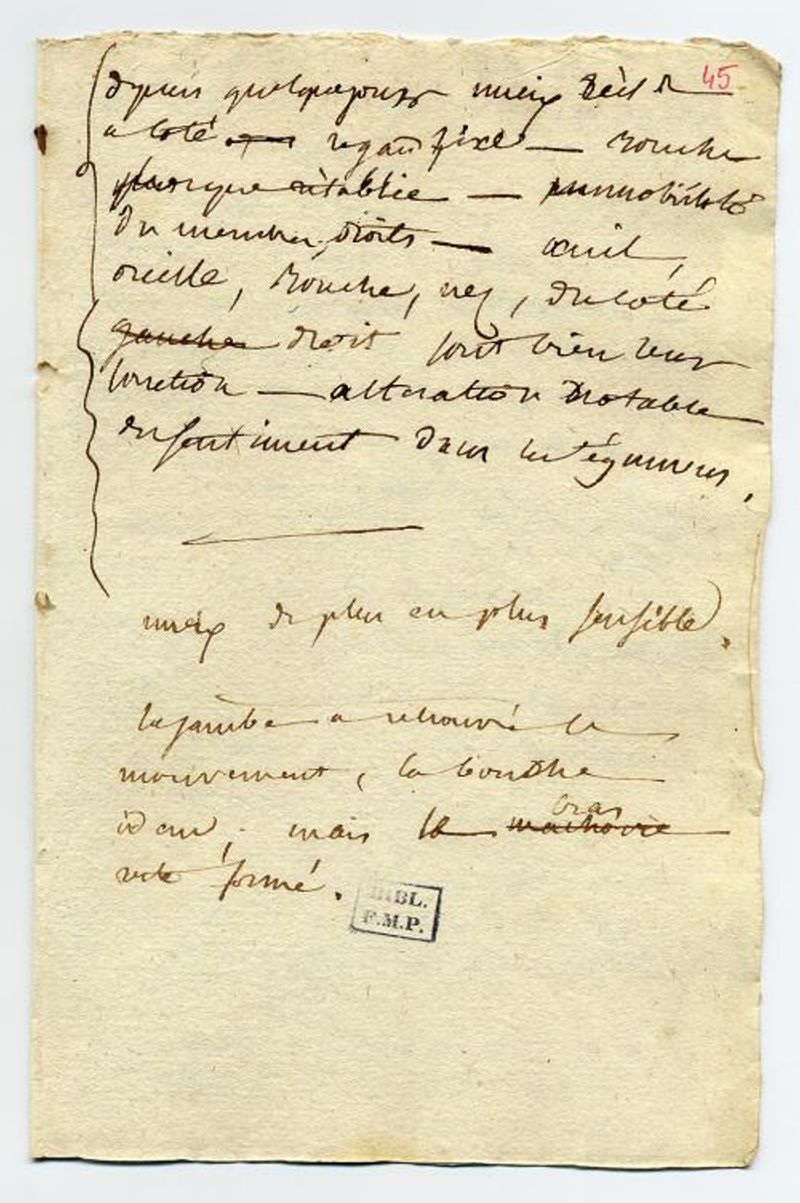 45
depuis quelques jours mieux
a coté regard fixe — Bouche
presque rétablie — immobilité
du membre droits — œuil,
oreille, Bouche, nez, du coté
gauche droit font bien leurs
fonction — alteration notable
du sentiment dans les tégumens.
mieux de plus en plus sensible.
la jambe a retrouvé le
mouvement, la bouche
idem, mais le machoire
bras
reste fermé.
BIBL.
F.M.P.